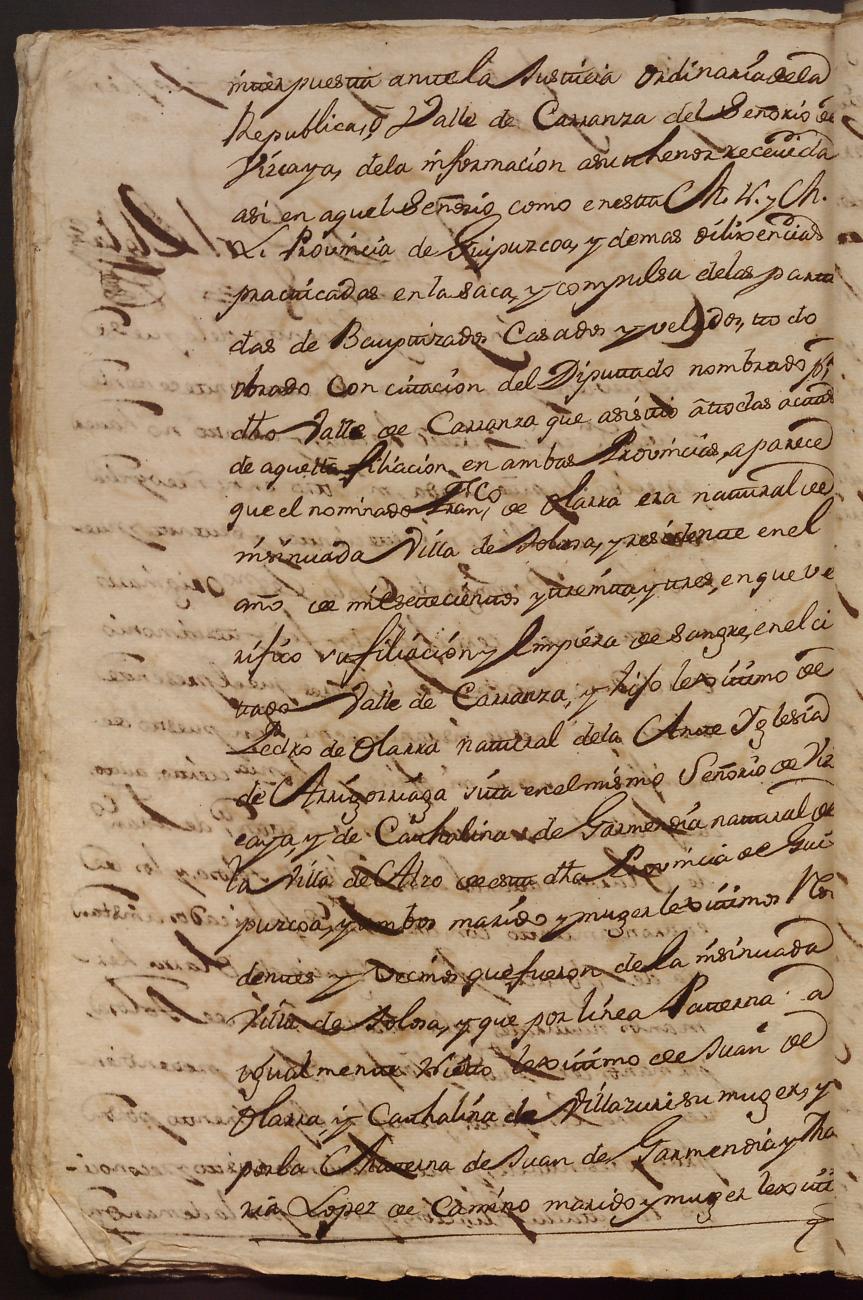 interpuesta ante la Justicia Ordinaria de la
Republica, o Valle de Carranza del Señorio de
Vizcaya, de la informacion a su thenor recevida
asi en aquel Señorio como en esta M. N. y M.
L. Provincia de Guipuzcoa, y demas dilixencias
practicadas en la saca, y compulsa de las parti
das de Bauptizados Casados y velados, todo
obrado con citacion del Diputado nombrado pr.
dho Valle de Carranza que asistio a todas actuas
de aquella filiacion, en ambas Provincias, aparece
que el nominado Franco. de Olarra era natural de
insinuada Villa de Tolosa, y residente en el
año de mil setecientos y treinta y tres, en que ve
rifico su filiacion y limpieza de sangre, en el ci
tado Valle de Carranza, y hijo lexitimo de
Pedro de Olarra natural de la Ante Yglesia
de Arrigorriaga sita en el mismo Señorio de Viz
caya, y de Cathalina de Garmendia natural de
la Villa de Alzo de esta dha Provincia de Gui
puzcoa, y ambos marido y muger lexitimos Resi
dentes y vecinos que fueron de la insinuada
Villa de Tolosa, y que por linea Paterna a
ygualmente Nieto lexitimo de Juan de
Olarra y Cathalina de Villazuri su muger, y
por la Materna de Juan de Garmendia y Ma
ria Lopez de Camino marido y muger lexiti